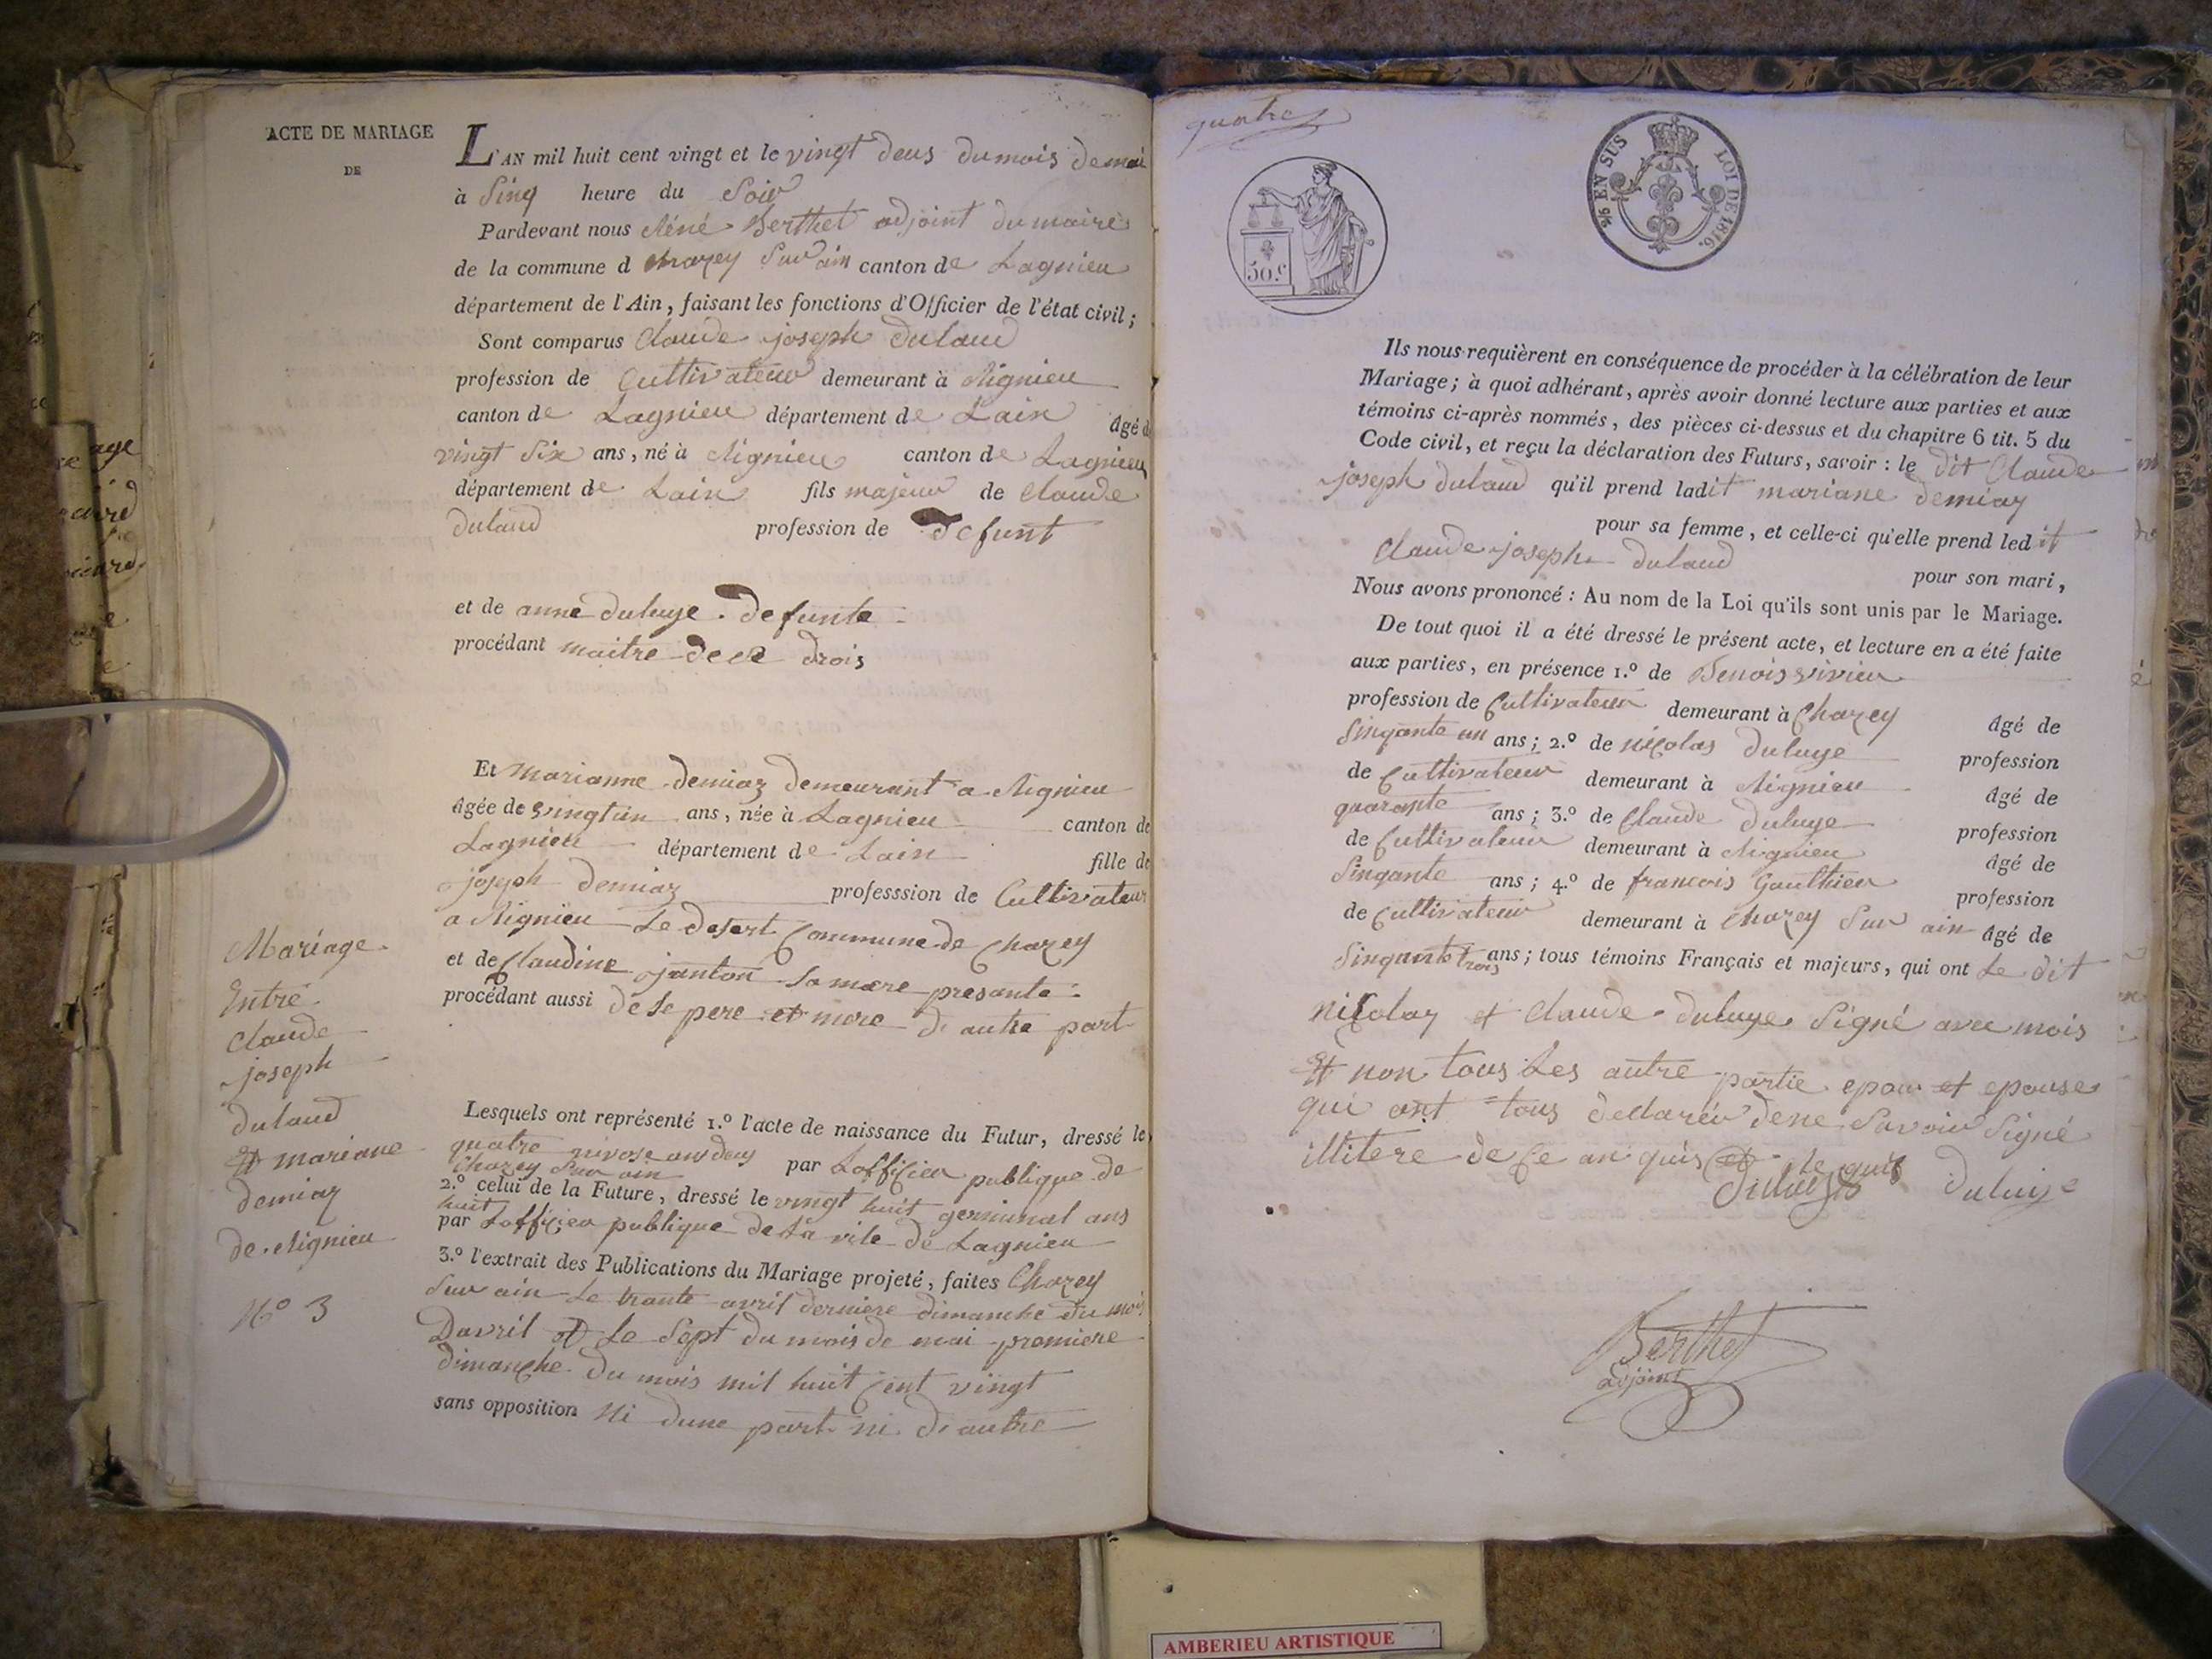 ACTE DE MARIAGE
DE
L'AN mil huit cent vingt et le vingt deus du mois de mai
à Sinq heure du Soir
Pardevant nous Réné Berthet adjoint du maire
de la commune d Charey Sur ain canton de Lagnieu
département de l'Ain, faisant les fonctions d'Officier de l'état civil;
Sont comparus Claude joseph dulaud
profession de Cultivateur demeurant à Rignieu
canton de Lagnieu département de Lain âgé d
vingt Six ans, né à Rignieu canton de Lagnieu
département de Lain fils majeur de Claude
dulaud profession de defunt
et de anne duluye . defunte
procédant maitre de drois
Et Marianne demiaz demeurant a Rignieu
âgée de vingt un ans, née à Lagnieu canton de
Lagnieu département de Lain fille de
joseph demiaz professsion de Cultivateur
a Rignieu Le desert Commune de Charey
et de Claudine janton Sa mære presante
procédant aussi de Se pere et mere d'autre part
Lesquels ont représenté 1.º l'acte de naissance du Futur, dressé le
quatre nivose an deus par Lofficier publique de
Charey Sur ain
2.º celui de la Future, dressé le vingt huit germinal ans
huit
par Lofficier publique de La vile de Lagnieu
3.º l'extrait des Publications du Mariage projeté, faites Charey
Sur ain Le trante avril derniere dimanche du mois
Davril et Le Sept du mois de mai premiere
dimanche du mois mil huit Cent vingt
sans opposition Ni dune part ni d'autre
Mariage
Entre
Claude
joseph
dulaud
Et mariane
demiaz
de Rignieu
Nº 3
quatre
50.c
2/6 EN SUS
LOI DE 1816.
Ils nous requièrent en conséquence de procéder à la célébration de leur
Mariage; à quoi adhérant, après avoir donné lecture aux parties et aux
témoins ci-après nommés, des pièces ci-dessus et du chapitre 6 tit. 5 du
Code civil, et reçu la déclaration des Futurs, savoir: le dit Claude
joseph dulaud qu'il prend ladit mariane demiaz
pour sa femme, et celle-ci qu'elle prend ledit
Claude joseph dulaud pour son mari,
Nous avons prononcé: Au nom de la Loi qu'ils sont unis par le Mariage.
De tout quoi il a été dressé le présent acte, et lecture en a été faite
aux parties, en présence 1.º de Benois vivieu
profession de Cultivateur demeurant à Charey âgé de
Sinqante un ans; 2.º de niColas duluye profession
de Cultivateur demeurant à Rignieu âgé de
quarante ans; 3.º de Claude duluye profession
de Cultivateur demeurant à Rignieu âgé de
Sinqante ans; 4.º de francois Gauthieu profession
de Cultivateur demeurant à Charey Sur ain âgé de
Sinqante trois ans; tous témoins Français et majeurs, qui ont Le dit
niColas et Claude duluye Signé avec mois
Et non tous Les autre partie epour et epouse
qui ont tous dellarér de ne Savoir Signé
illitere de Ce
duluye
Berthet
adjoint
AMBERIEU ARTISTIQUE